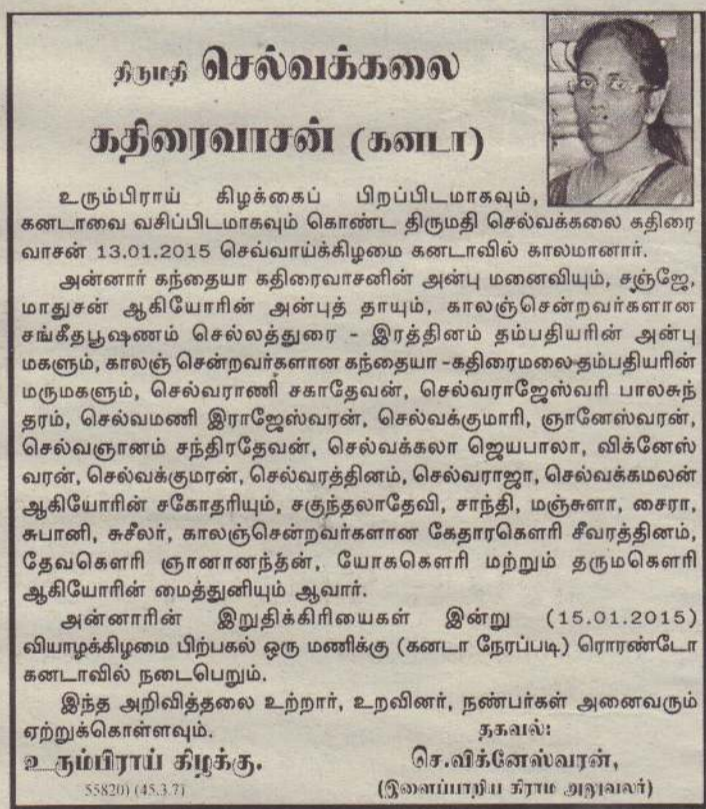 திருமதி செல்வக்கலை
கதிரைவாசன் (கனடா)
உரும்பிராய் கிழக்கைப் பிறப்பிடமாகவும்,
கனடாவை வசிப்பிடமாகவும் கொண்ட திருமதி செல்வக்கலை கதிரை
வாசன் 13.01.2015 செவ்வாய்க்கிழமை கனடாவில் காலமானார்.
அன்னார் கந்தையா கதிரைவாசனின் அன்பு மனைவியும், சஞ்ஜே,
மாதுசன் ஆகியோரின் அன்புத் தாயும், காலஞ்சென்றவர்களான
சங்கீதபூஷணம் செல்லத்துரை - இரத்தினம் தம்பதியரின் அன்பு
மகளும், காலஞ் சென்றவர்களான கந்தையா -கதிரைமலை தம்பதியரின்
மருமகளும், செல்வராணி சகாதேவன், செல்வராஜேஸ்வரி பாலசுந்
தரம், செல்வமணி இராஜேஸ்வரன், செல்வக்குமாரி, ஞானேஸ்வரன்,
செல்வஞானம் சந்திரதேவன், செல்வக்கலா ஜெயபாலா, விக்னேஸ்
வரன், செல்வக்குமரன், செல்வரத்தினம், செல்வராஜா, செல்வக்கமலன்
ஆகியோரின் சகோதரியும், சகுந்தலாதேவி, சாந்தி, மஞ்சுளா, சைரா,
சுபானி, சுசீலர், காலஞ்சென்றவர்களான கேதாரகௌரி சீவரத்தினம்,
தேவகௌரி ஞானானந்தன், யோககௌரி மற்றும் தருமகௌரி
ஆகியோரின் மைத்துனியும் ஆவார்.
அன்னாரின் இறுதிக்கிரியைகள் இன்று (15.01.2015)
வியாழக்கிழமை பிற்பகல் ஒரு மணிக்கு (கனடா நேரப்படி) ரொரண்டோ
கனடாவில் நடைபெறும்.
இந்த அறிவித்தலை உற்றார், உறவினர், நண்பர்கள் அனைவரும்
ஏற்றுக்கொள்ளவும்.
தகவல்:
உரும்பிராய் கிழக்கு.
செ.விக்னேஸ்வரன்,
55820) (45.3.7)
(இளைப்பாறிய கிராம அலுவலர்)